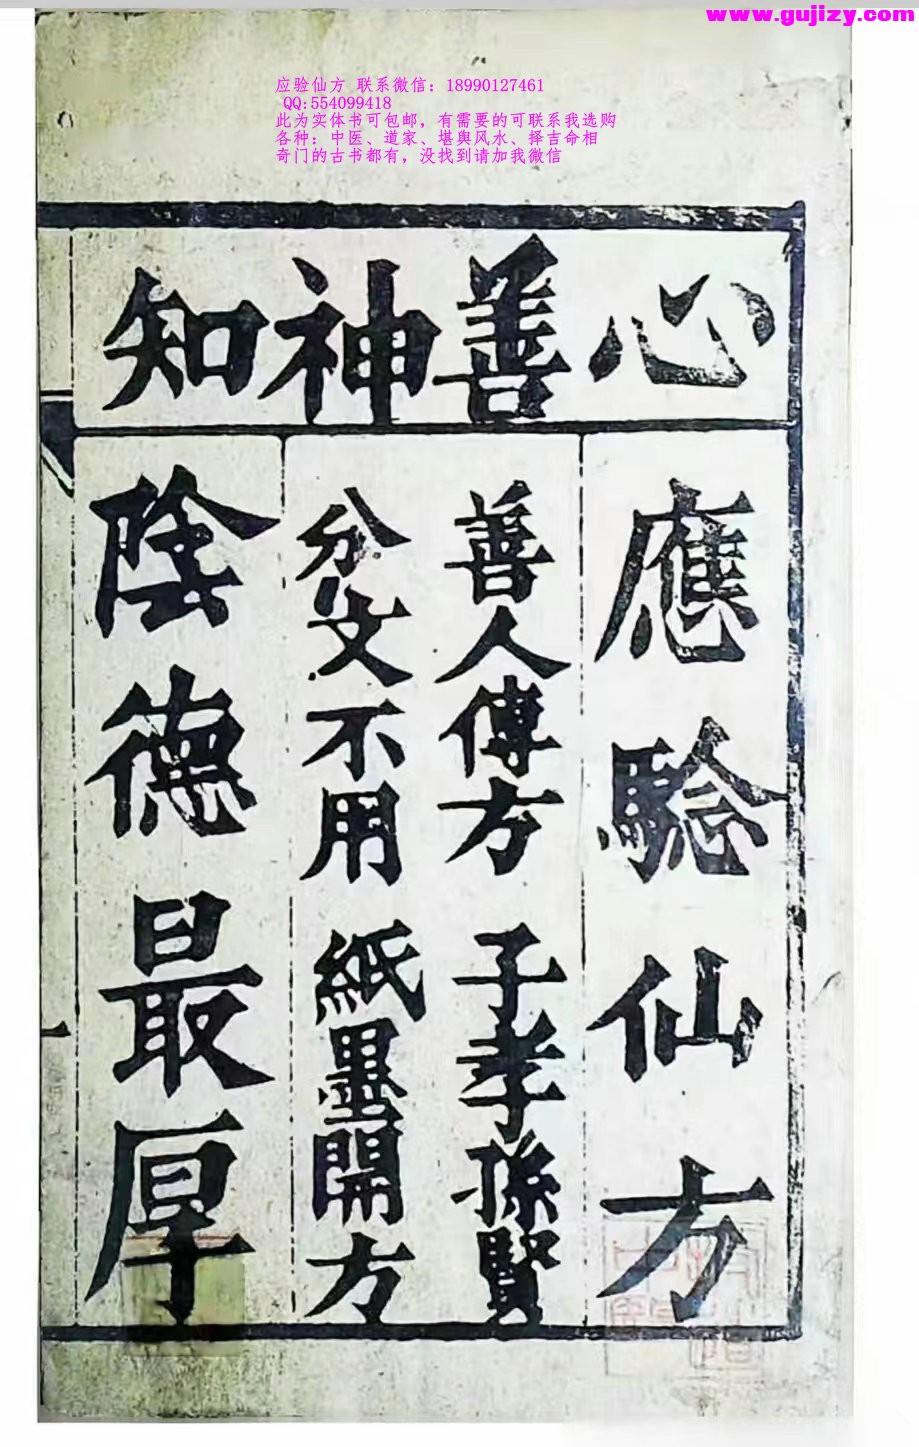 www.gujizy.com
应验仙方 联系微信：18990127461
QQ:554099418
此为实体书可包邮，有需要的可联系我选购
各种：中医、道家、堪舆风水、择吉命相
奇门的古书都有，没找到请加我微信
心善神知
應驗仙方
善人傳方 子孝孫賢
分文不用 紙墨開方
陰德最厚